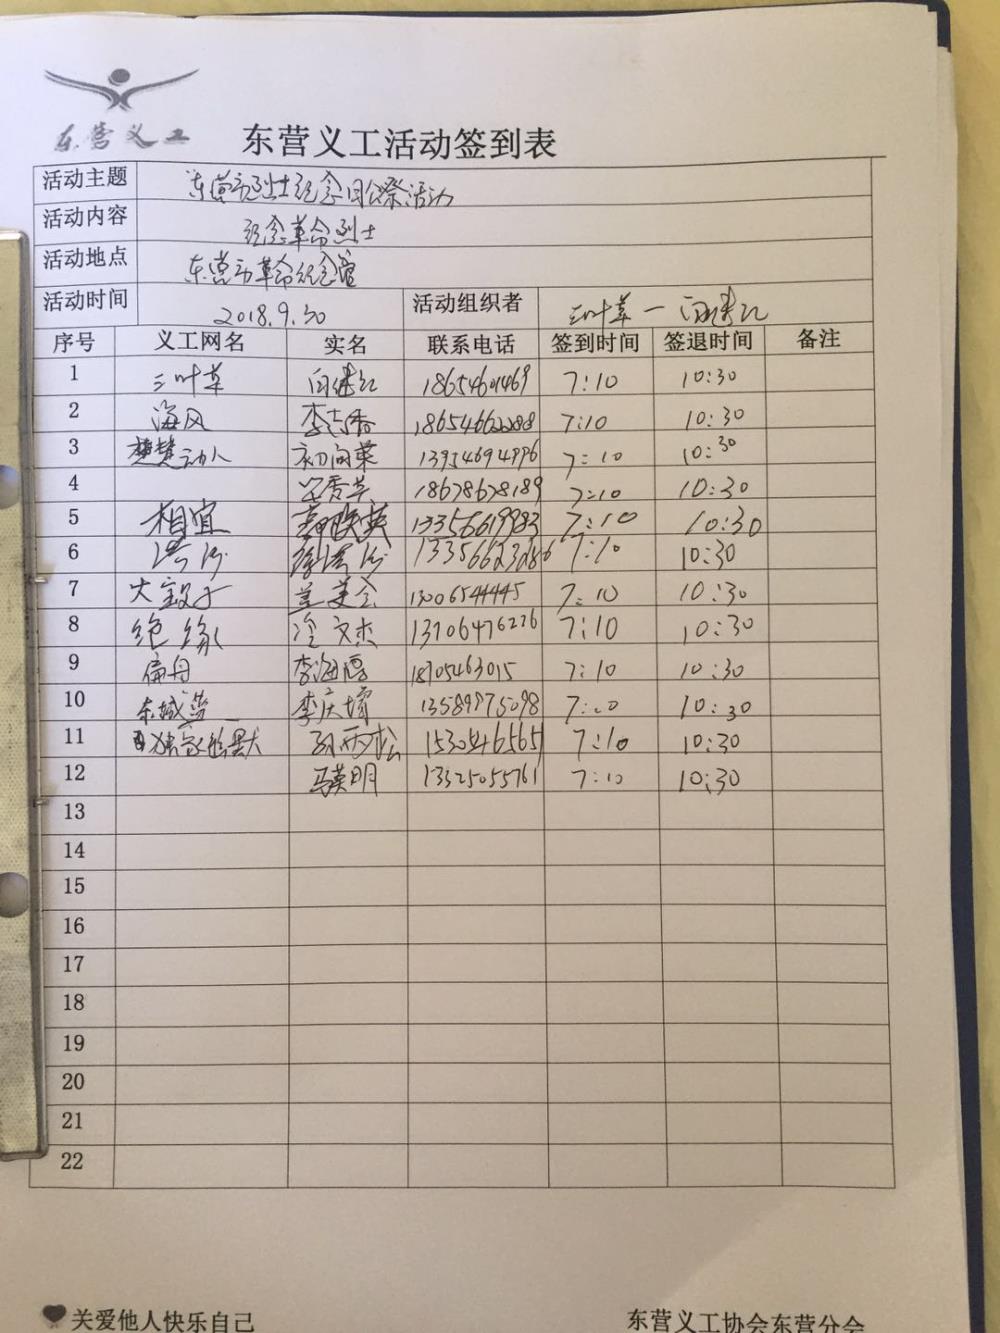 东营义工
东营义工活动签到表
活动主题 东营市烈士纪念日公祭活动
活动内容 纪念革命烈士
活动地点 东营市革命纪念馆
活动时间 2018.9.30 活动组织者 三叶草一
序号 义工网名 实名 联系电话 签到时间 签退时间 备注
1 三叶草 18654601469 7:10 10:30
2 海风 李志香 7:10 10:30
3 楚楚动人 初向荣 13954694996 7:10 10:30
4 18678678189 7:10 10:30
5 相宜 13356619983 7:10 10:30
6 洪沙 7:10 10:30
7 1306544445 7:10 10:30
8 绝缘 冷文杰 13706476276 7:10 10:30
9 扁舟 李海厚 18705463015 7:10 10:30
10 东城蓝 13589975098 7:10 10:30
11 15305466565 7:10 10:30
12 马英明 13325055761 7:10 10:30
13
14
15
16
17
18
19
20
21
22
关爱他人快乐自己 东营义工协会东营分会